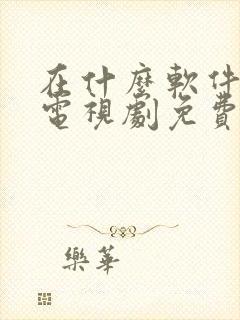 在什麼軟件
電視劇免費
樂華